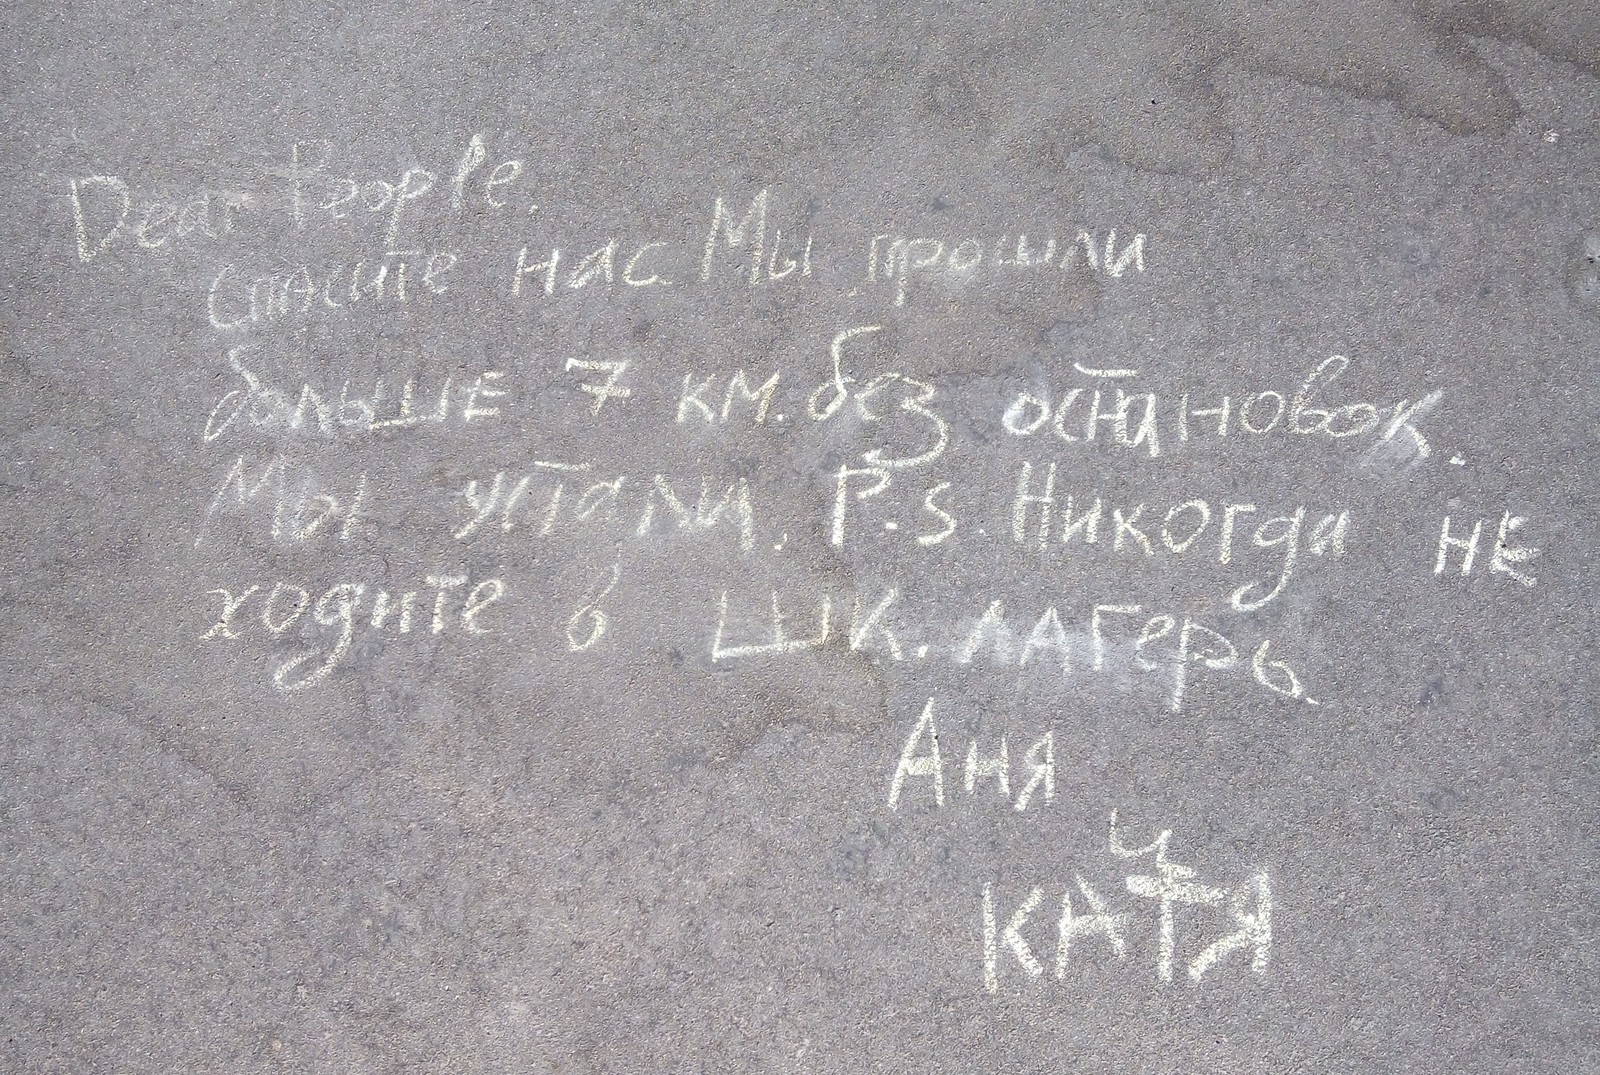 Dear People.
Спасите нас Мы прошли
больше 7 км. без остановок.
Мы устали. P.S. Никогда не
ходите в шк. лагерь
Аня
и
Катя